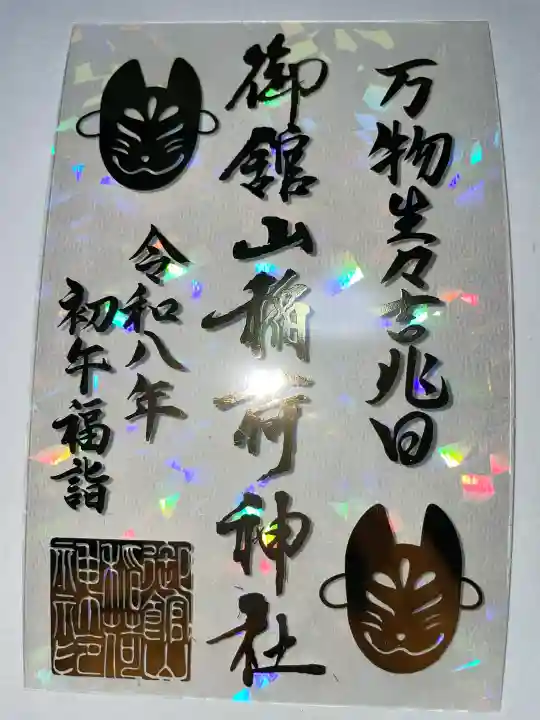 万物生々吉兆日
御舘山稲荷神社
令和八年
初午福詣
御館山
稲荷
神社印